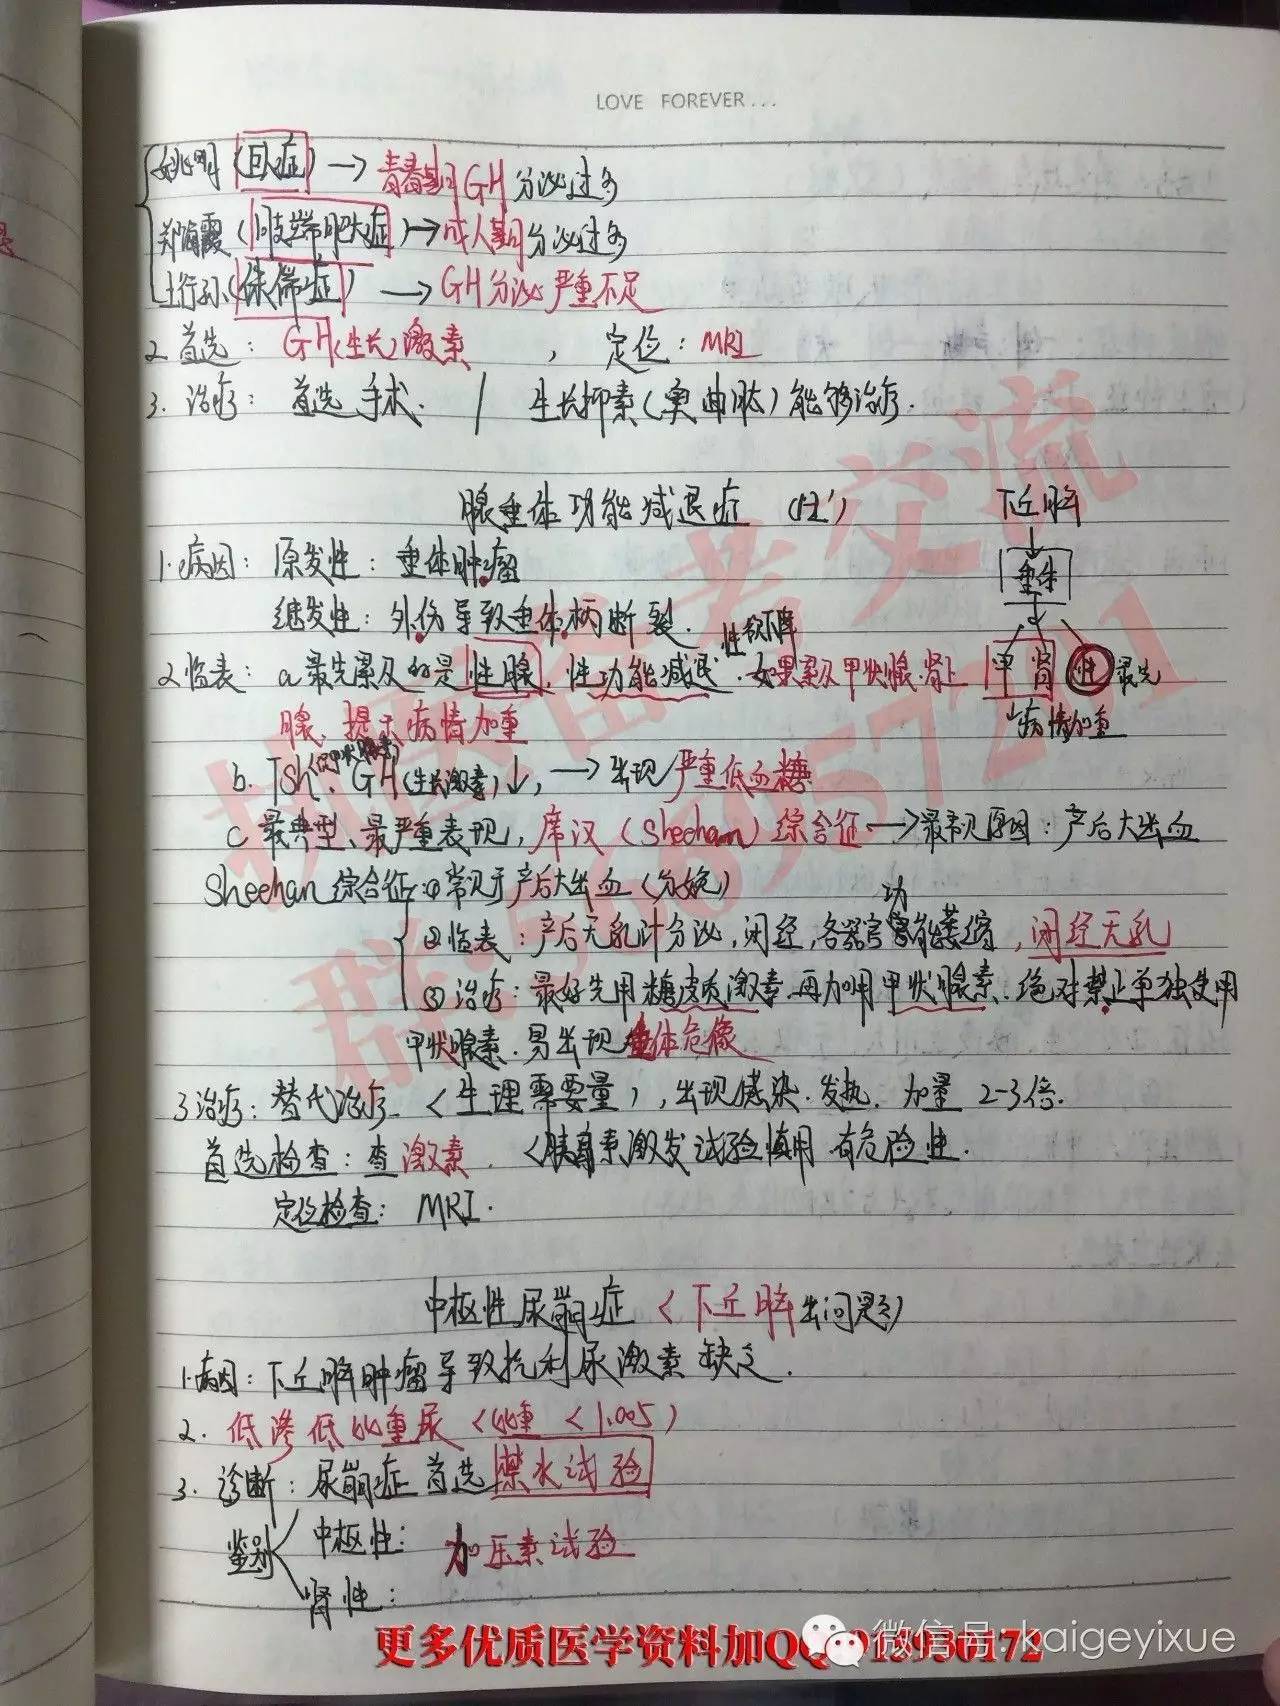 LOVE FOREVER...
姚明（巨人症）→青春期GH分泌过多
郑海霞（肢端肥大症）→成人期分泌过多
土行孙（侏儒症）→GH分泌严重不足
2.首选：GH(生长)激素，定位：MRI
3.治疗：首选手术. / 生长抑素(奥曲肽)能够治疗.
腺垂体功能减退症
下丘脑
垂体
甲 肾 性 最先
病情加重
1.病因：原发性：垂体肿瘤
继发性：外伤导致垂体柄断裂.
2.临表：a.最先累及的是性腺，性功能减退.性欲下降 如果累及甲状腺.肾上
腺，提示病情加重
b.TSH(促甲状腺素)、GH(生长激素)↓，→出现严重低血糖
c 最典型、最严重表现，席汉（Sheehan）综合征→最常见原因：产后大出血
Sheehan综合征：①常见于产后大出血（分娩）
②临表：产后无乳汁分泌，闭经，各器官功能萎缩，闭经无乳
③治疗：最好先用糖皮质激素.再加用甲状腺素.绝对禁止单独使用
甲状腺素.易出现垂体危像
3治疗：替代治疗（生理需要量），出现感染.发热.加量2-3倍.
首选检查：查激素.（胰岛素激发试验慎用 有危险性.
定位检查：MRI.
中枢性尿崩症（下丘脑出问题）
1.病因：下丘脑肿瘤导致抗利尿激素缺乏.
2.低渗低比重尿（比重<1.005）
3.诊断：尿崩症首选禁水试验
鉴别 中枢性：加压素试验
肾性：
执医备考交流
更多优质医学资料加QQ
微信号: kaigeyixue